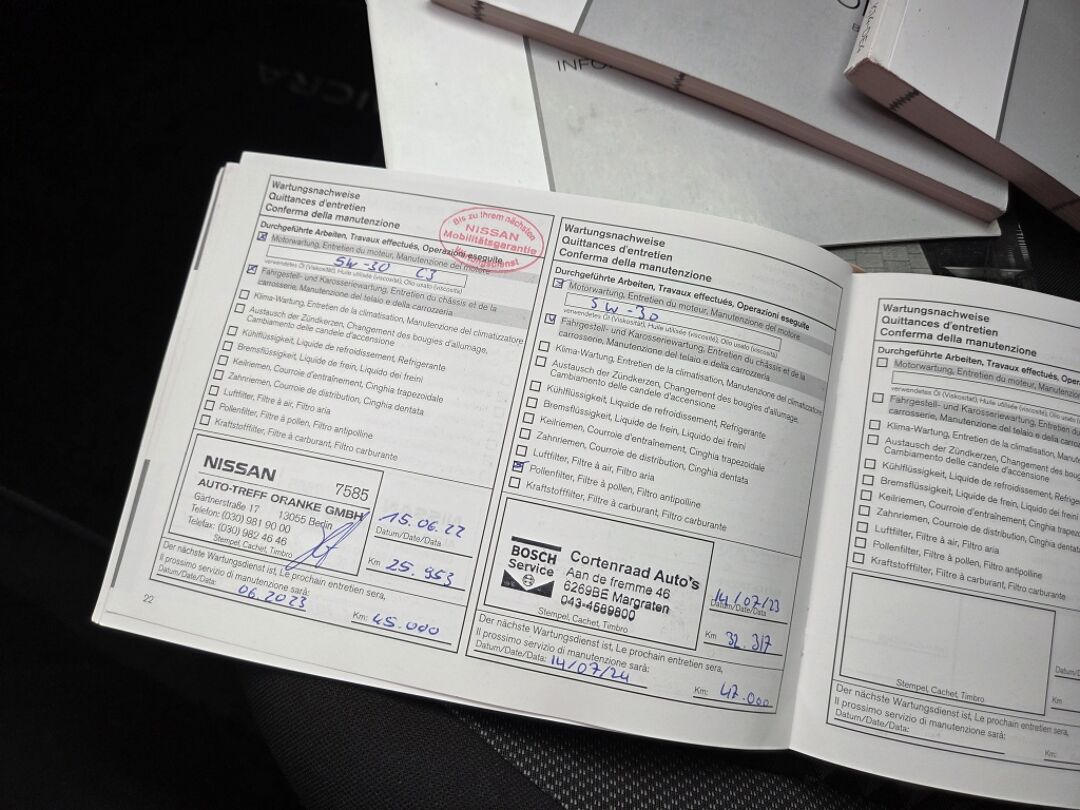 MICRA
INFO
Wartungsnachweise
Quittances d'entretien
Conferma della manutenzione
Bis zu Ihrem nächsten
NISSAN
Mobilitätsgarantie
Wartungsdienst
Durchgeführte Arbeiten, Travaux effectués, Operazioni eseguite
Motorwartung, Entretien du moteur, Manutenzione del motore
5W-30 C3
verwendetes Öl (Viskosität), Huile utilisée (viscosité), Olio usato (viscosità)
Fahrgestell- und Karosseriewartung, Entretien du châssis et de la
carrosserie, Manutenzione del telaio e della carrozzeria
Klima-Wartung, Entretien de la climatisation, Manutenzione del climatizzatore
Austausch der Zündkerzen, Changement des bougies d'allumage,
Cambiamento delle candele d'accensione
Kühlflüssigkeit, Liquide de refroidissement, Refrigerante
Bremsflüssigkeit, Liquide de frein, Liquido dei freini
Keilriemen, Courroie d'entraînement, Cinghia trapezoidale
Zahnriemen, Courroie de distribution, Cinghia dentata
Luftfilter, Filtre à air, Filtro aria
Pollenfilter, Filtre à pollen, Filtro antipolline
Kraftstofffilter, Filtre à carburant, Filtro carburante
NISSAN 7585
AUTO-TREFF ORANKE GMBH
Gärtnerstraße 17 13055 Berlin
Telefon: (030) 981 90 00
Telefax: (030) 982 46 46
Stempel, Cachet, Timbro
15.06.22
Datum/Date/Data
Km 25.953
Der nächste Wartungsdienst ist, Le prochain entretien sera,
Il prossimo servizio di manutenzione sarà:
Datum/Date/Data: 06.2023
Km: 45.000
22
Wartungsnachweise
Quittances d'entretien
Conferma della manutenzione
Durchgeführte Arbeiten, Travaux effectués, Operazioni eseguite
Motorwartung, Entretien du moteur, Manutenzione del motore
5W-30
verwendetes Öl (Viskosität), Huile utilisée (viscosité), Olio usato (viscosità)
Fahrgestell- und Karosseriewartung, Entretien du châssis et de la
carrosserie, Manutenzione del telaio e della carrozzeria
Klima-Wartung, Entretien de la climatisation, Manutenzione del climatizzatore
Austausch der Zündkerzen, Changement des bougies d'allumage,
Cambiamento delle candele d'accensione
Kühlflüssigkeit, Liquide de refroidissement, Refrigerante
Bremsflüssigkeit, Liquide de frein, Liquido dei freini
Keilriemen, Courroie d'entraînement, Cinghia trapezoidale
Zahnriemen, Courroie de distribution, Cinghia dentata
Luftfilter, Filtre à air, Filtro aria
Pollenfilter, Filtre à pollen, Filtro antipolline
Kraftstofffilter, Filtre à carburant, Filtro carburante
BOSCH
Service
Cortenraad Auto's
Aan de fremme 46
6269BE Margraten
043-4589800
Stempel, Cachet, Timbro
14/07/23
Datum/Date/Data
Km 32.317
Der nächste Wartungsdienst ist, Le prochain entretien sera,
Il prossimo servizio di manutenzione sarà:
Datum/Date/Data: 14/07/24
Km: 47.000
Wartungsnachweise
Quittances d'entretien
Conferma della manutenzione
Durchgeführte Arbeiten, Travaux effectués, Operazioni
Motorwartung, Entretien du moteur, Manutenzione
verwendetes Öl (Viskosität), Huile utilisée (viscosité), Olio usato
Fahrgestell- und Karosseriewartung, Entretien du
carrosserie, Manutenzione del telaio e della
Klima-Wartung, Entretien de la climatisation,
Austausch der Zündkerzen, Changement des
Cambiamento delle candele d'accensione
Kühlflüssigkeit, Liquide de refroidissement,
Bremsflüssigkeit, Liquide de frein, Liquido dei
Keilriemen, Courroie d'entraînement, Cinghia
Zahnriemen, Courroie de distribution, Cinghia
Luftfilter, Filtre à air, Filtro aria
Pollenfilter, Filtre à pollen, Filtro antipolline
Kraftstofffilter, Filtre à carburant, Filtro carburante
Stempel, Cachet, Timbro
Km
Der nächste Wartungsdienst ist, Le prochain entretien sera,
Il prossimo servizio di manutenzione sarà:
Datum/Date/Data:
Km: